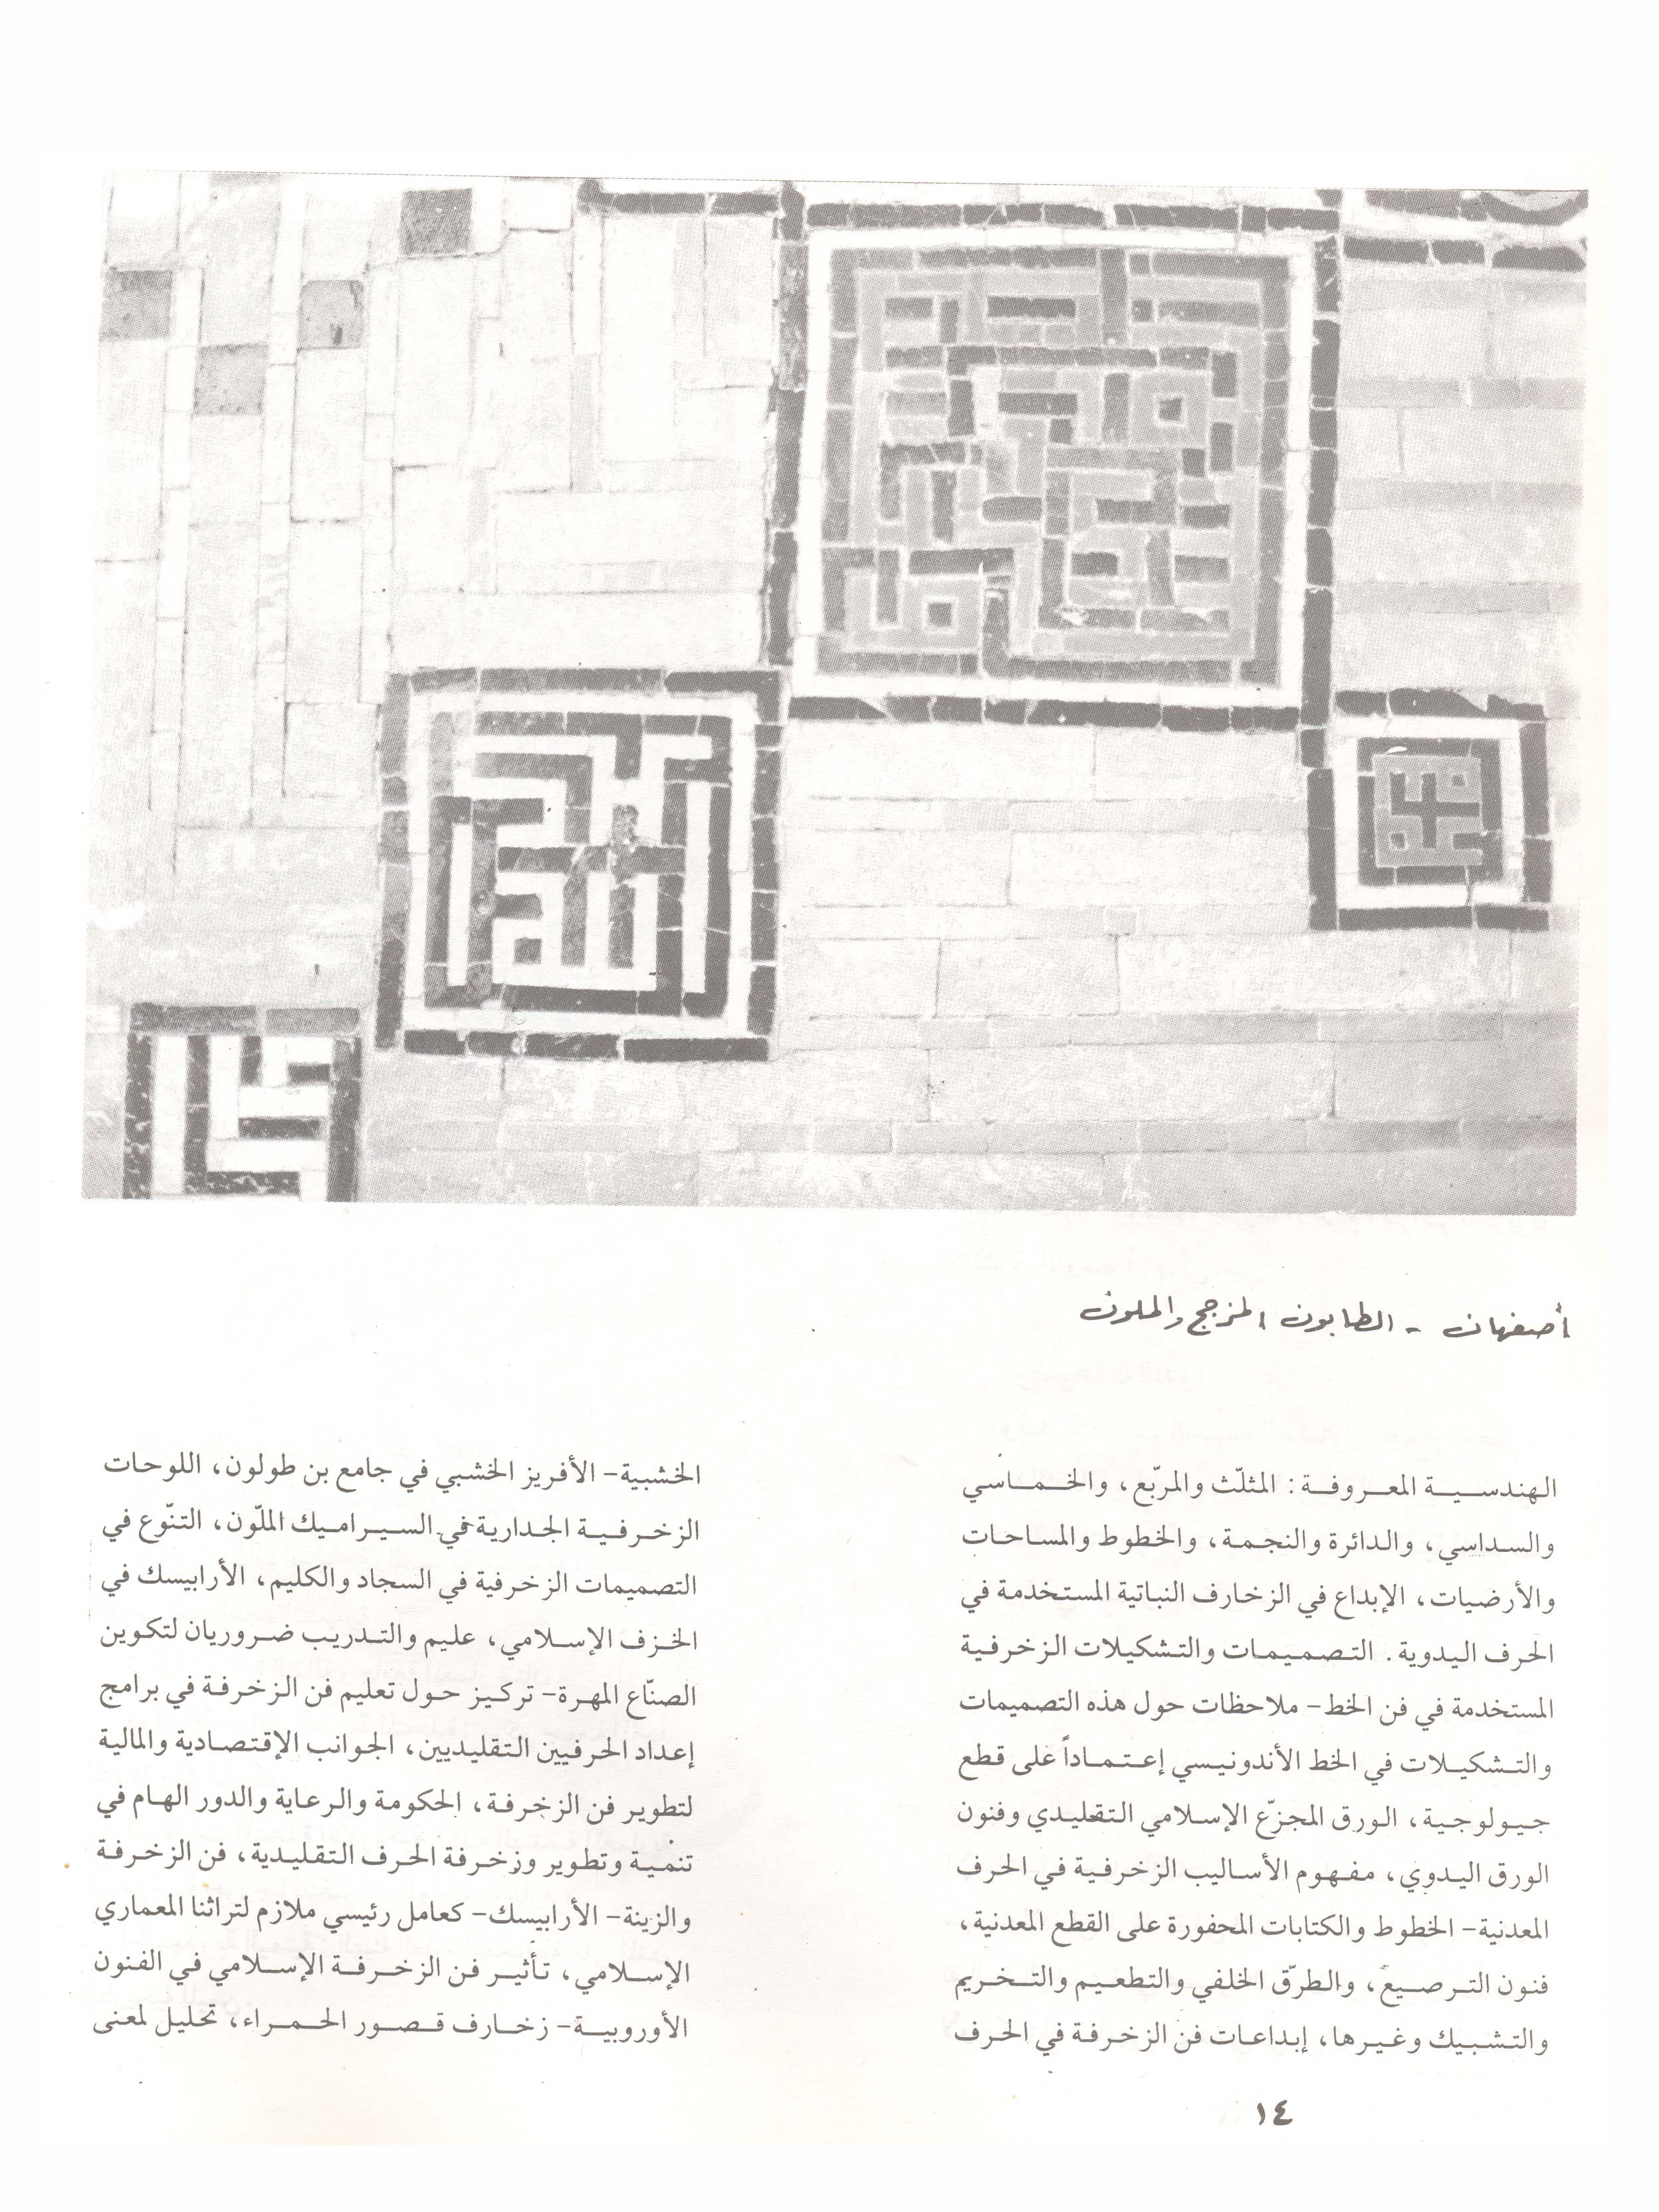 أصفهان - الطابوق المزجج والملون
الهندسية المعروفة: المثلّث والمربّع، والخماسي
والسداسي، والدائرة والنجمة، والخطوط والمساحات
والأرضيات، الإبداع في الزخارف النباتية المستخدمة في
الحرف اليدوية. التصميمات والتشكيلات الزخرفية
المستخدمة في فن الخط- ملاحظات حول هذه التصميمات
والتشكيلات في الخط الأندونيسي إعتماداً على قطع
جيولوجية، الورق المجزّع الإسلامي التقليدي وفنون
الورق اليدوي، مفهوم الأساليب الزخرفية في الحرف
المعدنية- الخطوط والكتابات المحفورة على القطع المعدنية،
فنون الترصيع، والطرّق الخلفي والتطعيم والتخريم
والتشبيك وغيرها، إبداعات فن الزخرفة في الحرف
الخشبية- الأفريز الخشبي في جامع بن طولون، اللوحات
الزخرفية الجدارية في السيراميك الملّون، التنّوع في
التصميمات الزخرفية في السجاد والكليم، الأرابيسك في
الخزف الإسلامي، عليم والتدريب ضروريان لتكوين
الصنّاع المهرة- تركيز حول تعليم فن الزخرفة في برامج
إعداد الحرفيين التقليديين، الجوانب الإقتصادية والمالية
لتطوير فن الزخرفة، الحكومة والرعاية والدور الهام في
تنمية وتطوير وزخرفة الحرف التقليدية، فن الزخرفة
والزينة- الأرابيسك- كعامل رئيسي ملازم لتراثنا المعماري
الإسلامي، تأثير فن الزخرفة الإسلامي في الفنون
الأوروبية- زخارف قصور الحمراء، تحليل لمعنى
١٤